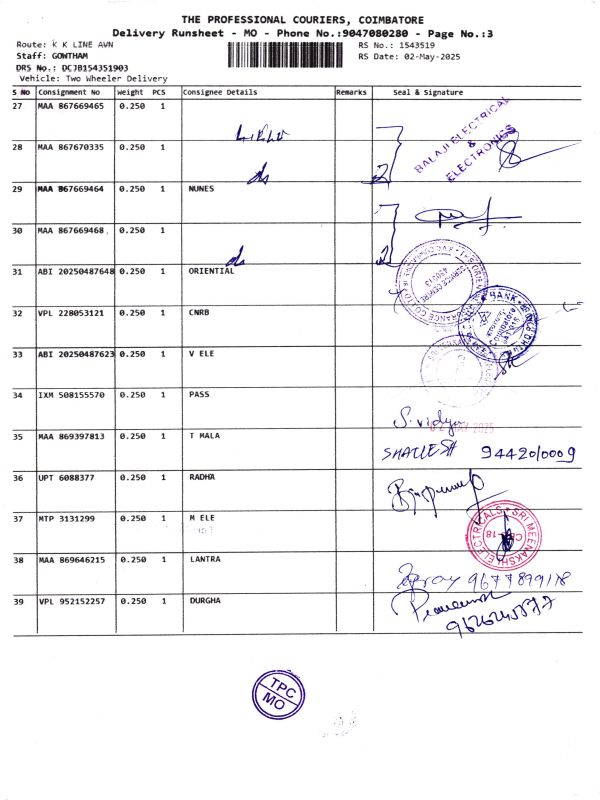 THE PROFESSIONAL COURIERS, COIMBATORE
Delivery Runsheet - MO - Phone No.:9047080280 - Page No.:3
Route: K K LINE AVN
RS No.: 1543519
Staff: GOWTHAM
RS Date: 02-May-2025
DRS No.: DCJB154351903
Vehicle: Two Wheeler Delivery
S No Consignment No Weight PCS Consignee Details Remarks Seal & Signature
27 MAA 867669465 0.250 1
BALAJI ELECTRICAL & ELECTRONICS
28 MAA 867670335 0.250 1
2
29 MAA 867669464 0.250 1 NUNES
30 MAA 867669468 0.250 1
2
31 ABI 20250487648 0.250 1 ORIENTIAL
32 VPL 228053121 0.250 1 CNRB
BANK
33 ABI 20250487623 0.250 1 V ELE
34 IXM 508155570 0.250 1 PASS
S. vidya
02 MAY 2025
35 MAA 869397813 0.250 1 T MALA
SHAILESH 9442010009
36 UPT 6088377 0.250 1 RADHA
37 MTP 3131299 0.250 1 M ELE
SRI MEENAKSHI ELECTRICALS
CBE-18
38 MAA 869646215 0.250 1 LANTRA
9677899178
39 VPL 952152257 0.250 1 DURGHA
TPC
MO